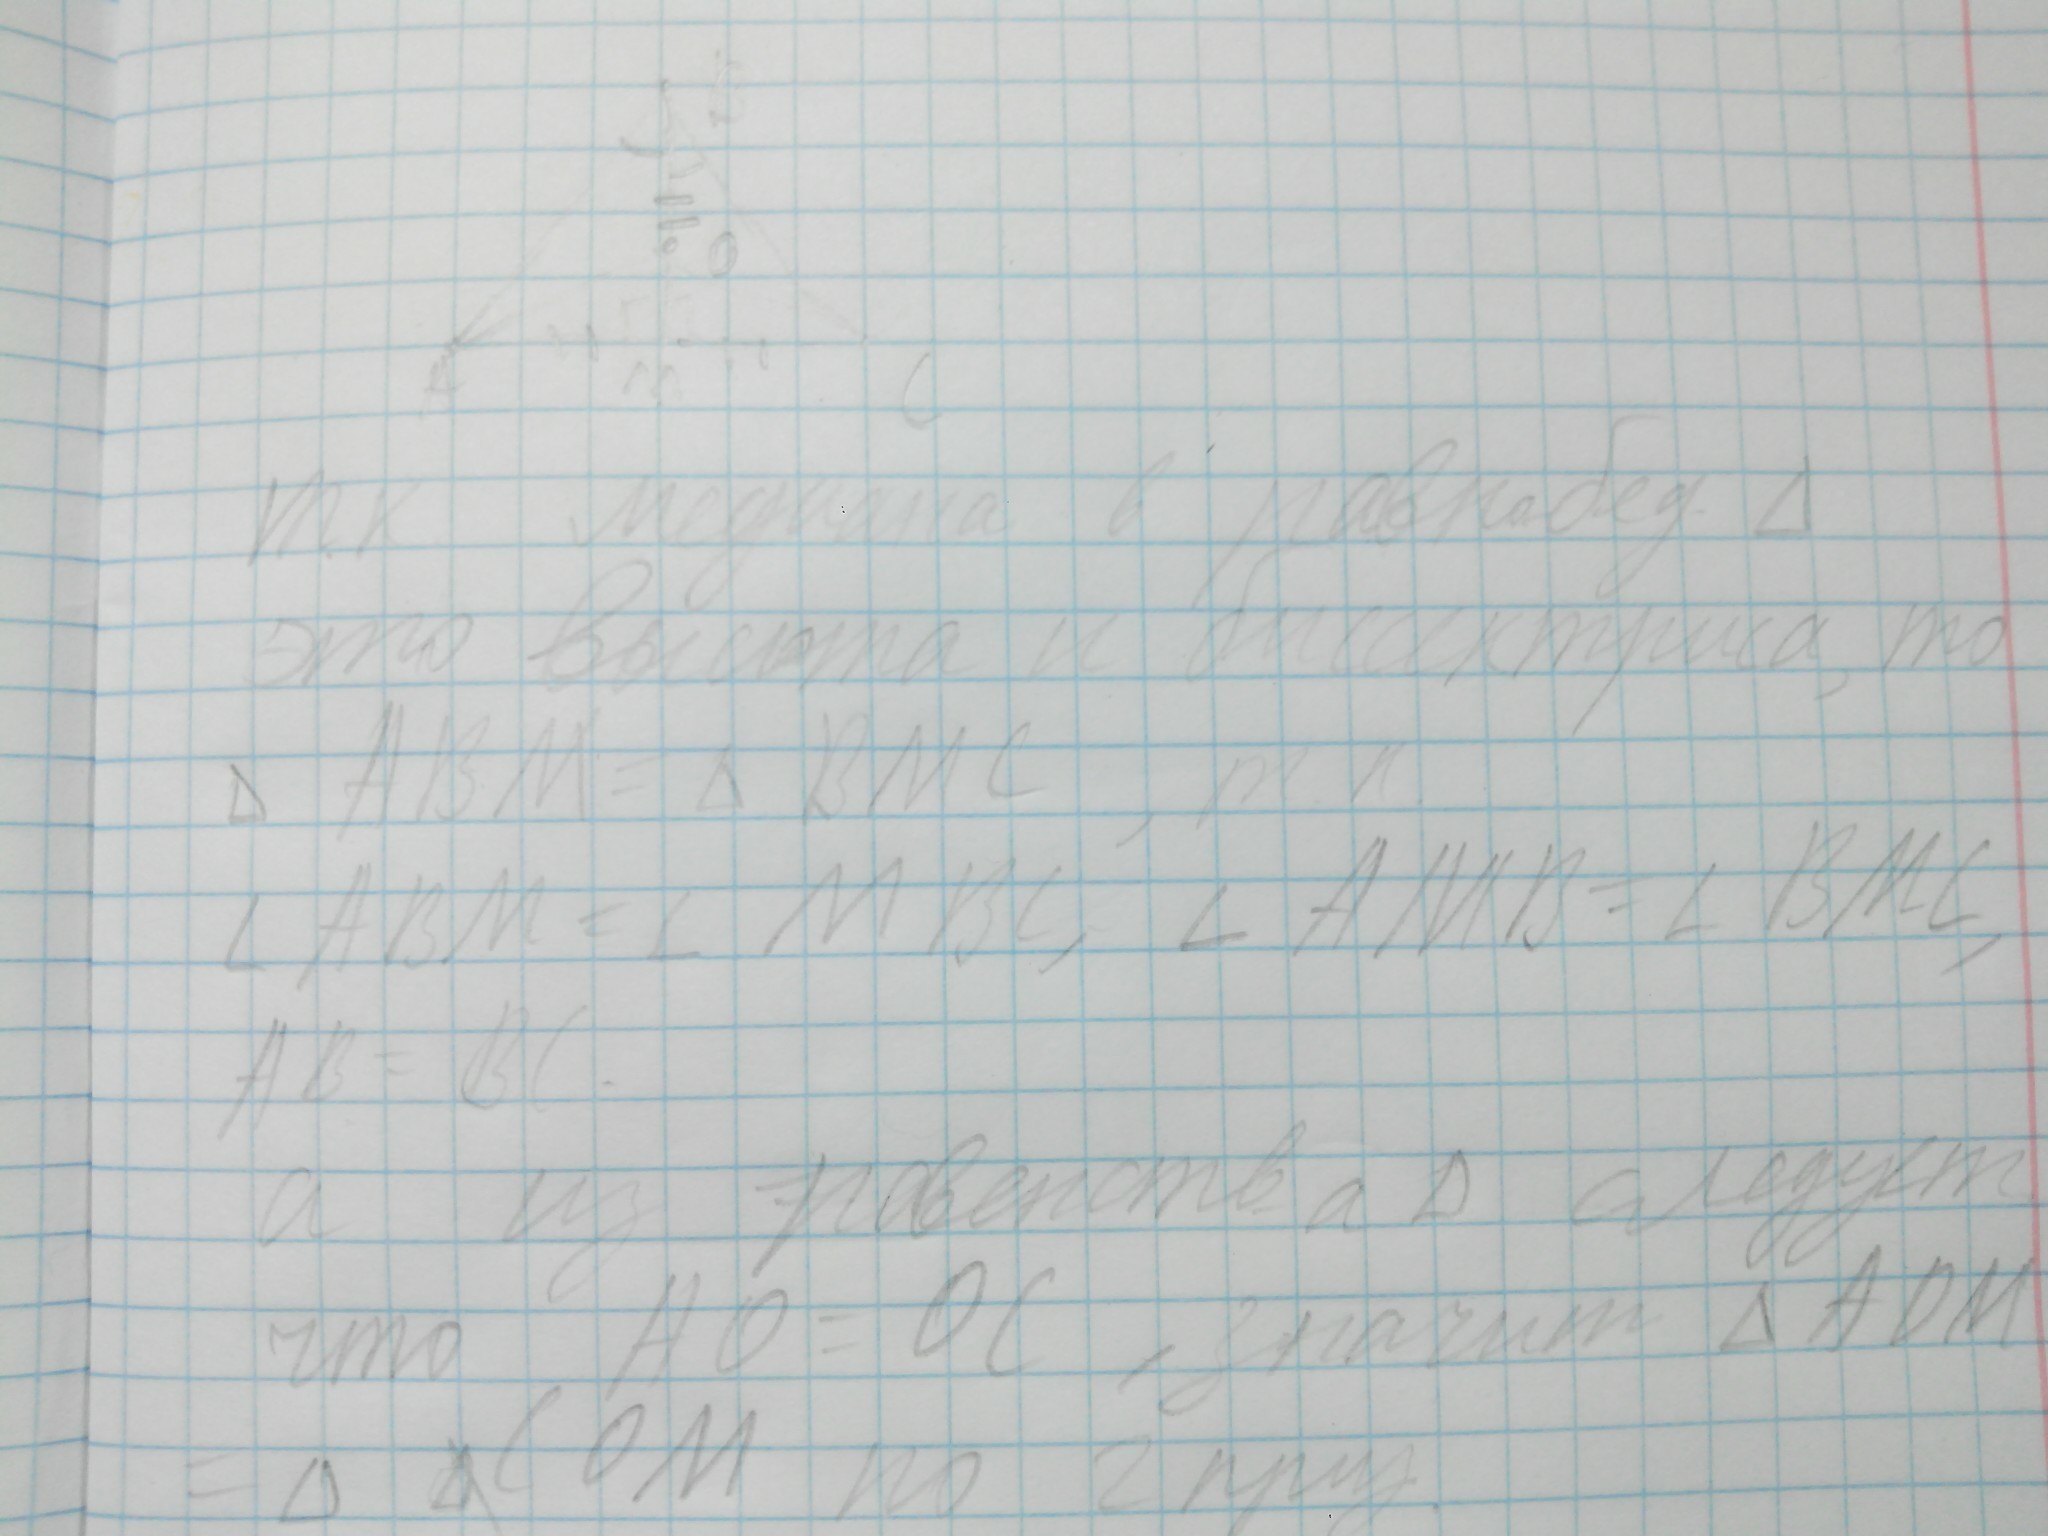 B
O
A M C
т.к медиана в равнобед. Δ
это высота и биссектриса, то
Δ ABM = Δ BMC, т.к.
∠ ABM = ∠ MBC, ∠ AMB = ∠ BMC,
AB = BC.
а из равенства Δ следует
что AO = OC, значит Δ AOM
= Δ COM по 2 приз.